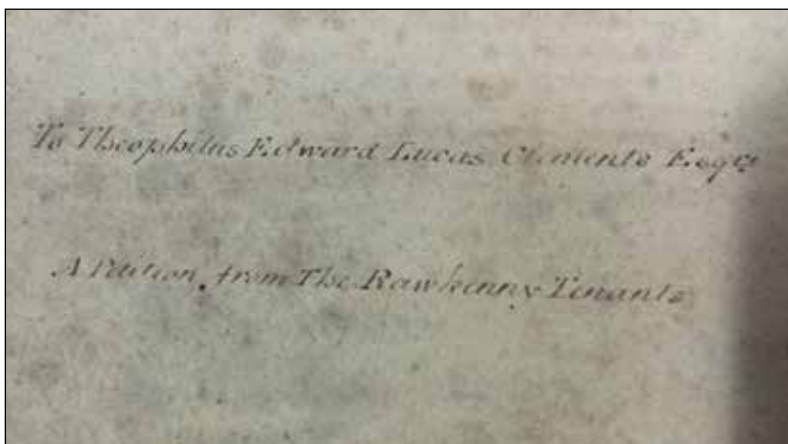 To Theophilus Edward Lucas Clements Esqr
A Petition from The Rawkenny Tenants